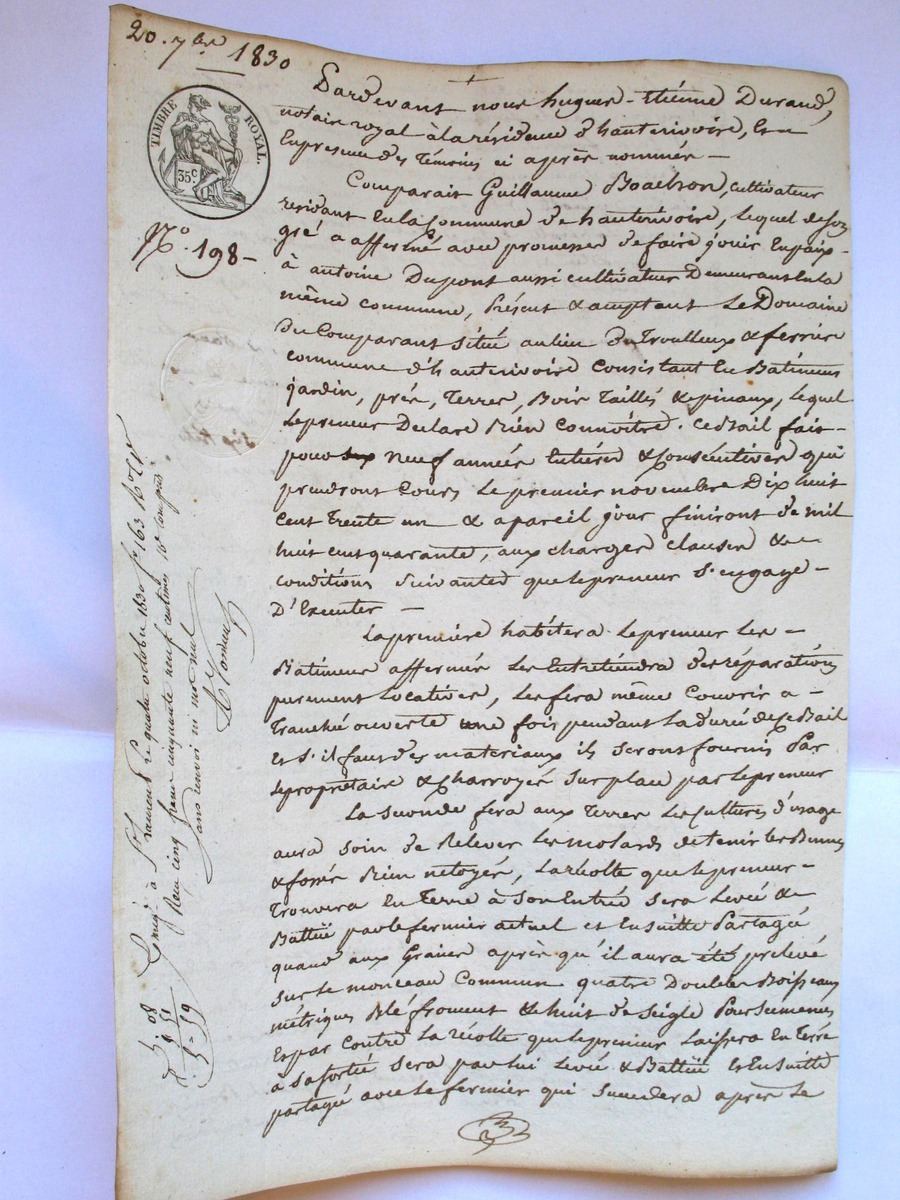 20. 7bre 1830
TIMBRE ROYAL.
35c.
No. 198 -
Pardevant nous hugues-étienne Durand,
notaire royal à la résidence d'hauterivoire, Et
En presence des Témoins ci après nommés -
Comparait Guillaume cultivateur
résidant En la Commune de hauterivoire, Lequel de son
gré a affermé avec promesse de faire jouir En paix -
à antoine Dupont aussi cultivateur Demeurant En la
même commune, Présent & acceptant Le Domaine
Du Comparant situé au lieu du & ferrier
commune d'hauterivoire Consistant En Bâtimens
jardin, prés, Terres, Bois Taillés & epinaux, Lequel
Le preneur Declare Bien Connoître. Ce Bail fait -
pour neuf années Entières & Consécutives qui
prendront Cours Le premier novembre Dix huit
Cent Trente un & a pareil jour finiront de mil
huit cent quarante, aux charges clauses & -
conditions suivantes que le preneur s'engage -
D'Executer -
La première habitera Le preneur Les -
Bâtimens affermés Les Entretiendra des réparations
purement Locatives, Les fera même Couvrir a -
Tranché ouverte une fois pendant La durée de Ce Bail
et s'il faut des materiaux ils seront fournis Par
Le propriétaire & Charroyés sur place par Le preneur
La seconde fera aux Terres Les Cultures d'usage
aura soin de Relever Les molards de tenir Les
& fossés Bien netoyés, La récolte que Le preneur -
Trouvera En Terre à son Entrée sera Levée & -
Battüe par Le fermier actuel et Ensuitte Partagée
quand aux Graines après qu'il aura été prélevé
sur Le monceau Commun quatre Doubles Boisseaux
métriques Blé froment & huit de seigle Pour semences
Et par Contre La récolte que Le preneur Laissera En Terre
à sa sortie sera par Lui Levée & Battüe Et Ensuitte
partagée avec Le fermier qui succedera après Le
Enregé à St Laurent Le quatre octobre 1830 fo 163
Reçu cinq francs cinquante neuf centimes 10e compris
sans renvoi ni mot nul
5. 08
51
5 = 59